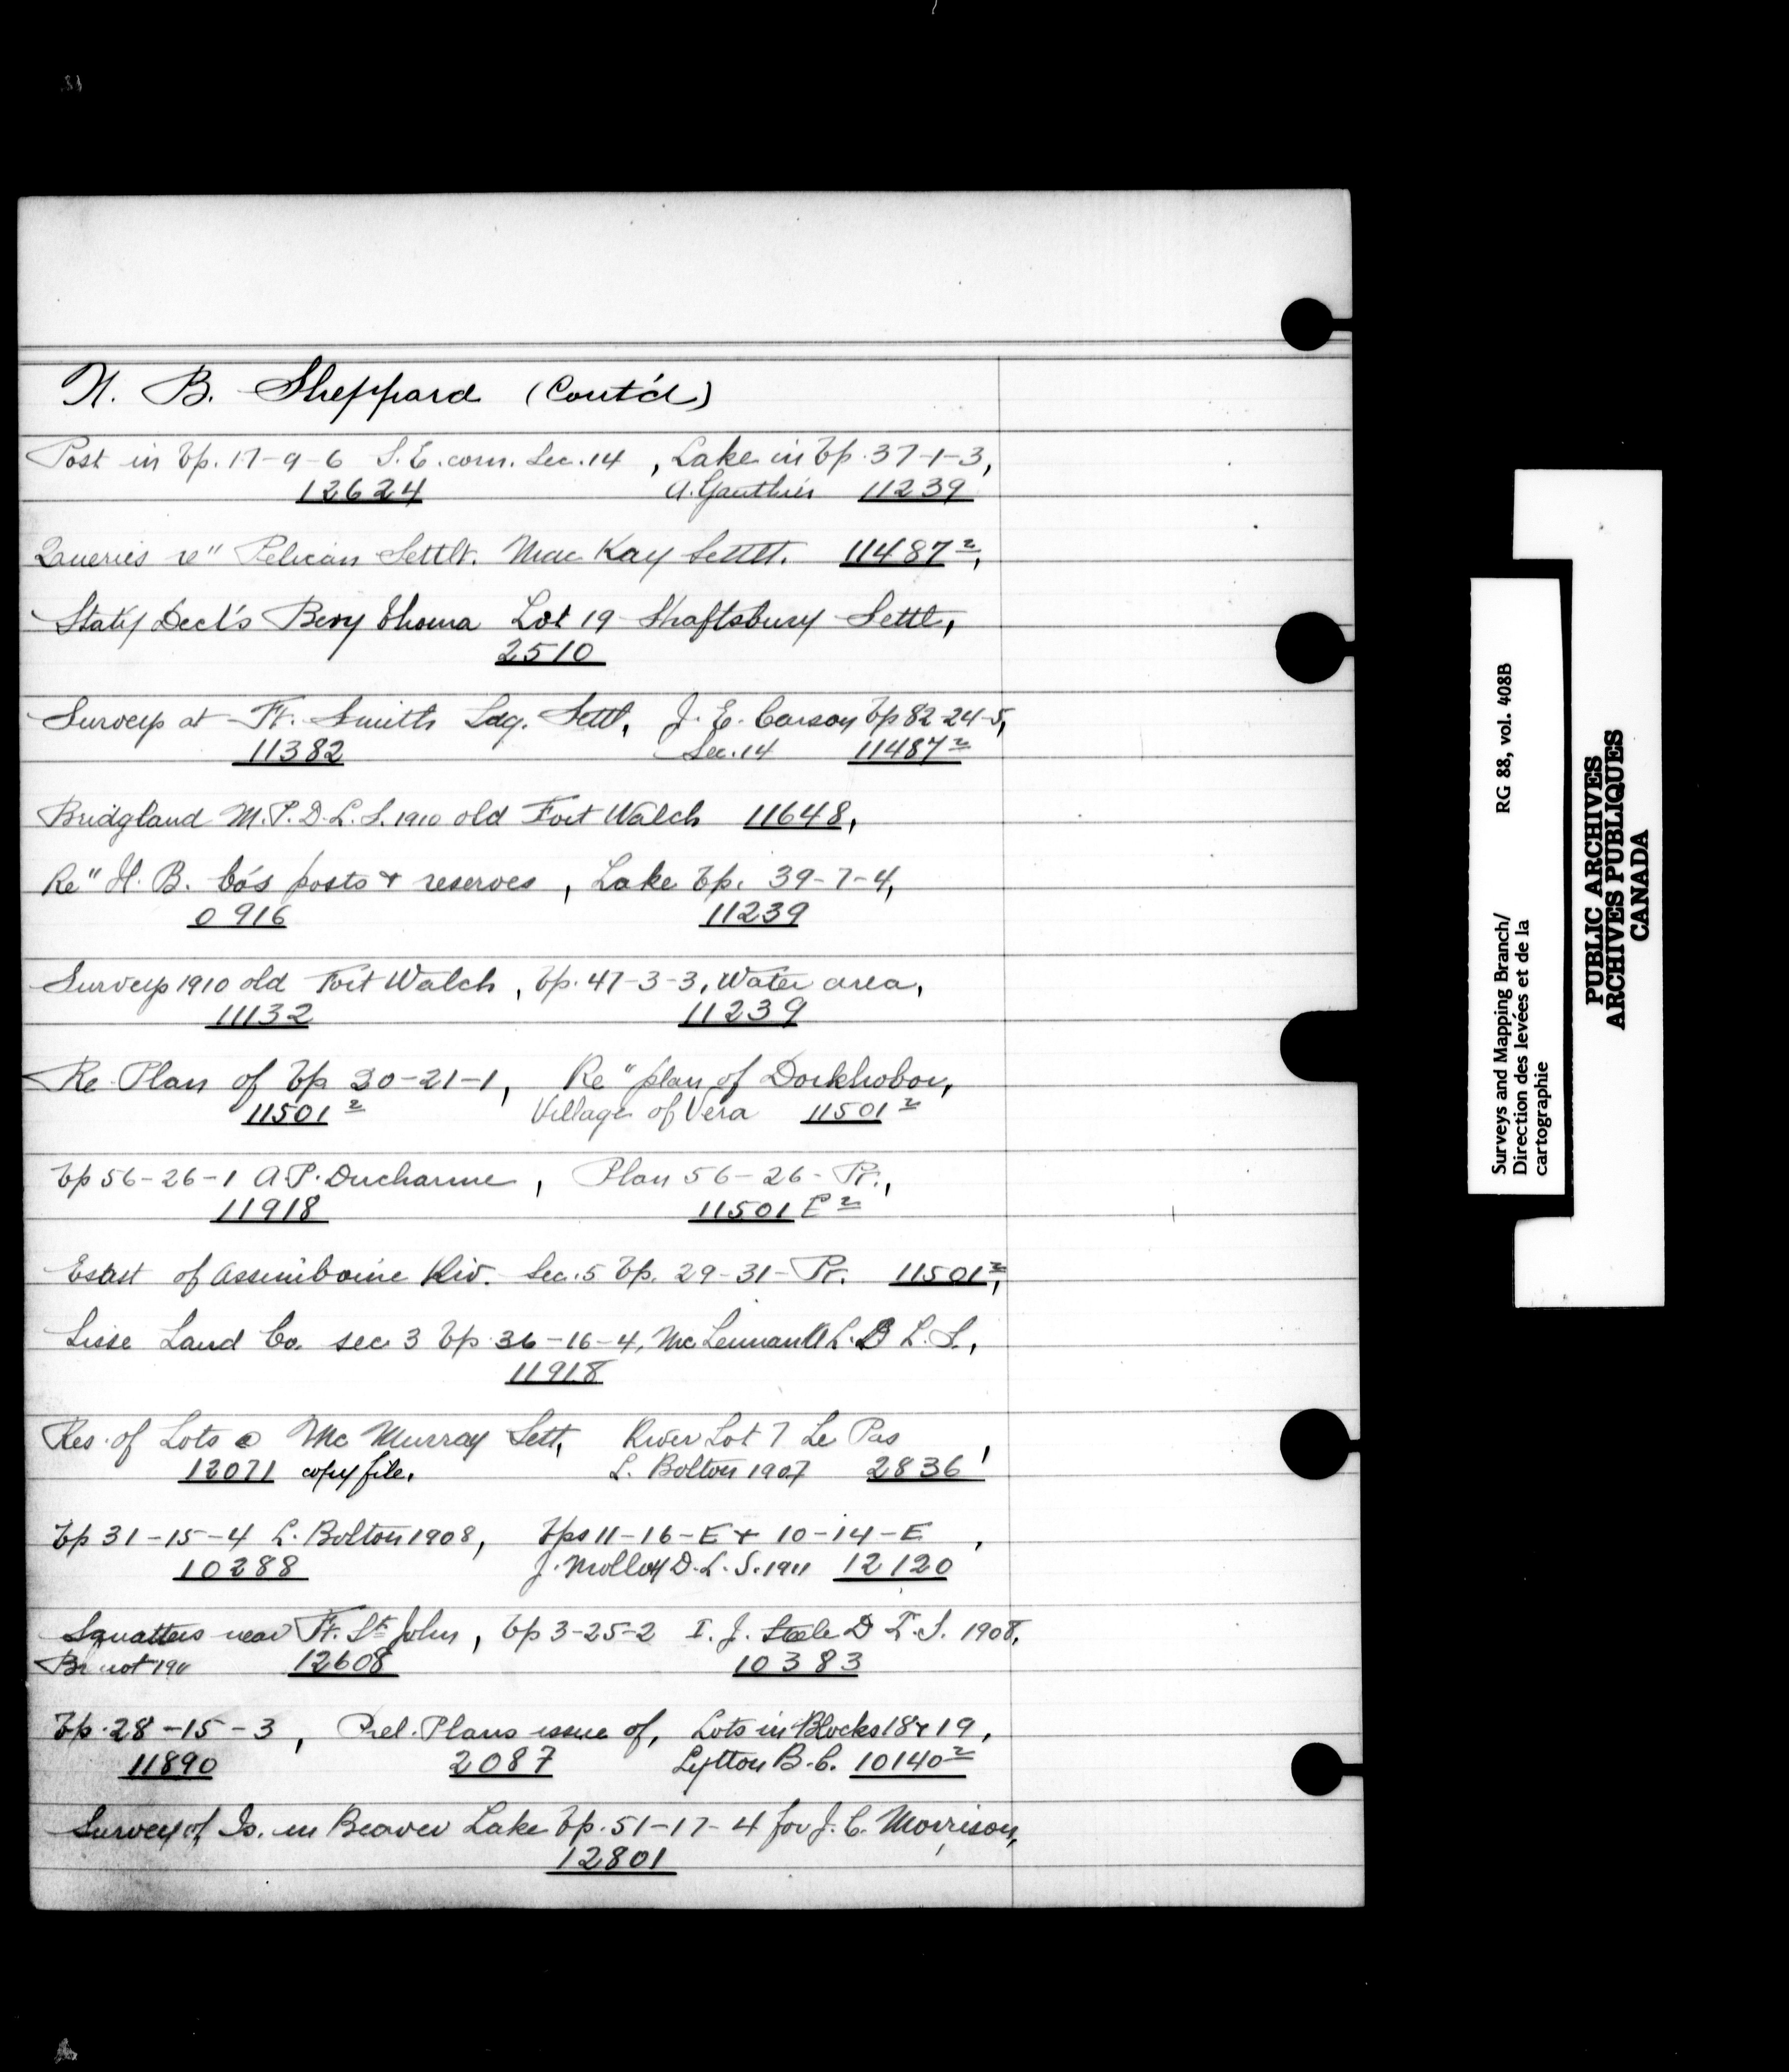 N. B. Sheppard (Cont'd)
Post in Tp. 17-9-6 S.E. corn. Sec. 14, Lake in Tp. 37-1-3,
12624 A. Gauthier 11239
Queries re" Pelican Settlt. Mac Kay Settlt. 11487²,
Staty Decl's Beny Thoma Lot 19 Shaftsbury Settl,
2510
Surveys at Ft. Smith Ldg. Settl, J. E. Carson Tp 82-24-5,
11382 Sec. 14 11487²
Bridgland M.P. D.L.S. 1910 old Fort Walch 11648,
Re" H. B. Co's posts + reserves, Lake Tp. 39-7-4,
0916 11239
Surveys 1910 old Fort Walch, Tp. 47-3-3, Water area,
11132 11239
Re Plan of Tp 30-21-1, Re" plan of Doukhobor,
11501² Village of Vera 11501²
Tp 56-26-1 A.P. Ducharme, Plan 56-26-Pr.,
11918 11501 E²
East of Assiniboine Riv. Sec. 5 Tp. 29-31-Pr. 11501²,
Land Co. sec 3 Tp 36-16-4, McLennan A L. D L. S.,
11918
Res. of Lots @ Mc Murray Sett, River Lot 7 Le Pas,
12071 copy file. L. Bolton 1907 2836
Tp 31-15-4 L. Bolton 1908, Tps 11-16-E + 10-14-E,
10288 J. Molloy D.L.S. 1911 12120
Squatters near Ft. St John, Tp 3-25-2 I. J. Steele D L.S. 1908,
12608 10383
Tp. 28-15-3, Prel. Plans issue of, Lots in Blocks 18 + 19,
11890 2087 Lytton B.C. 10140²
Survey of Is. in Beaver Lake Tp. 51-17-4 for J. C. Morrison,
12801
Surveys and Mapping Branch/ RG 88, vol. 408B
Direction des levées et de la
cartographie
PUBLIC ARCHIVES
ARCHIVES PUBLIQUES
CANADA